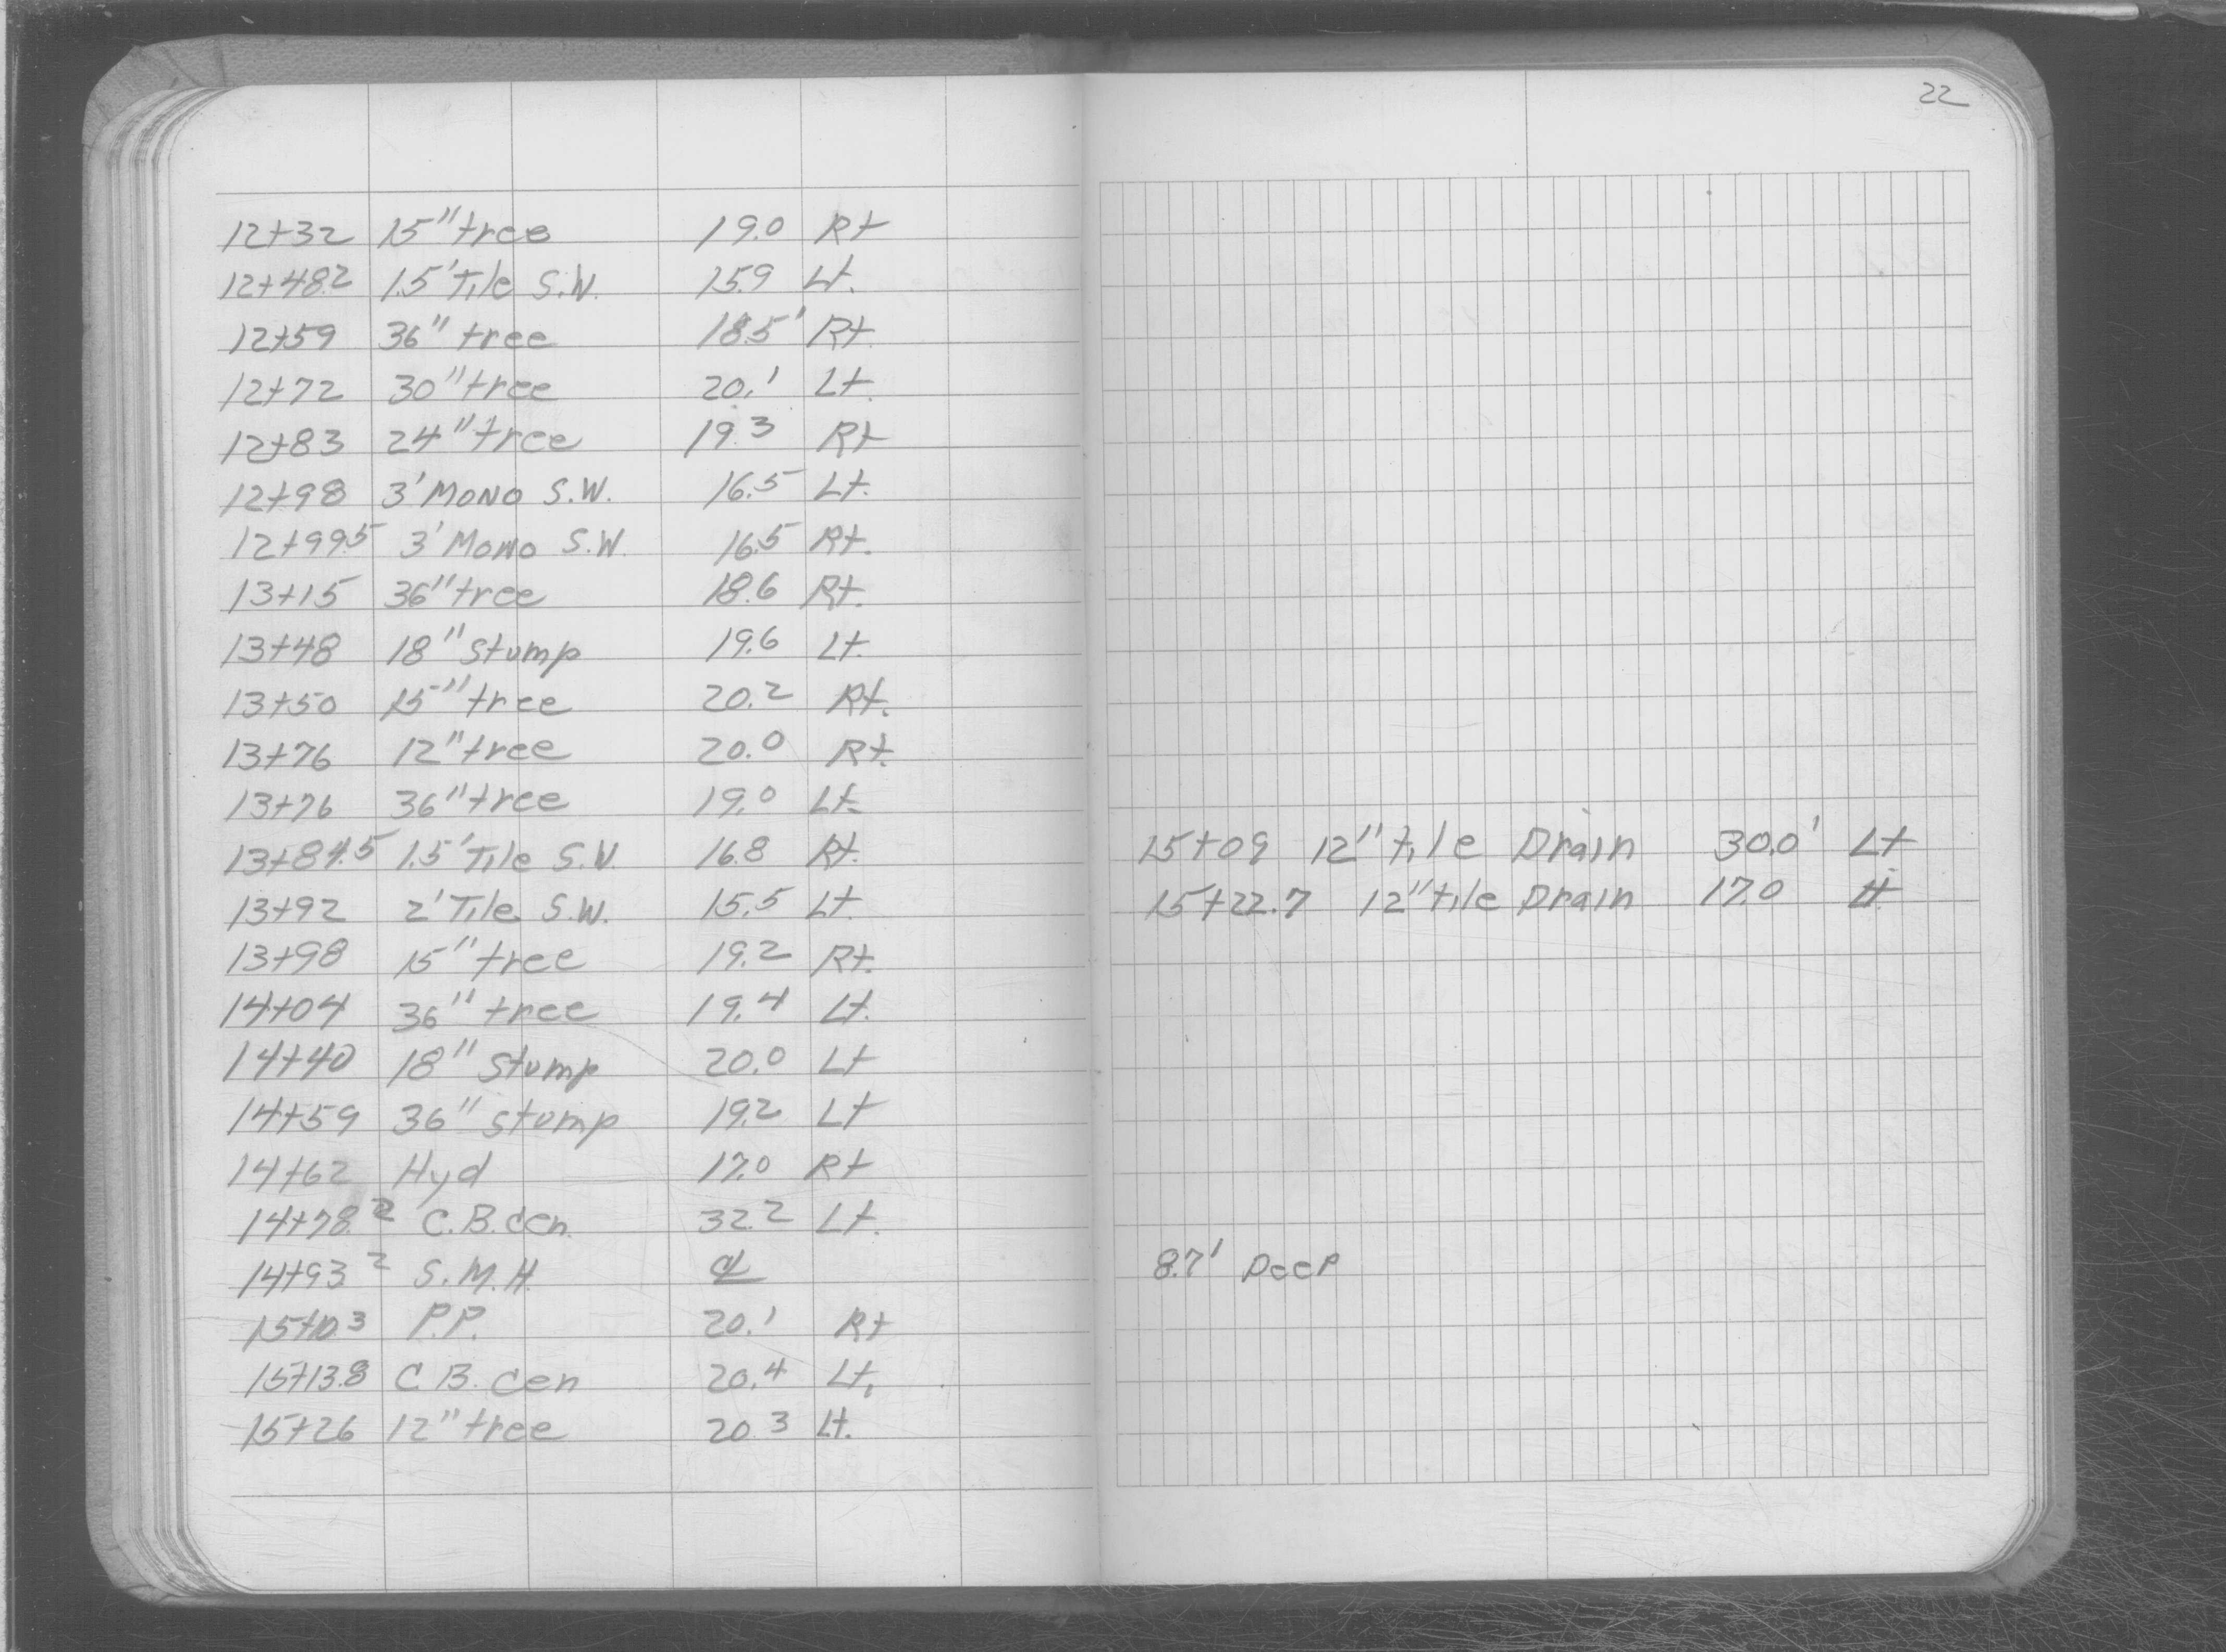 12+32 15" tree 19.0 Rt
12+48.2 1.5' Tile S.W. 15.9 Lt.
12+59 36" tree 18.5' Rt.
12+72 30" tree 20.1 Lt.
12+83 24" tree 19.3 Rt
12+98 3' MONO S.W. 16.5 Lt.
12+99.5 3' MONO S.W. 16.5 Rt.
13+15 36" tree 18.6 Rt.
13+48 18" Stump 19.6 Lt.
13+50 15" tree 20.2 Rt.
13+76 12" tree 20.0 Rt.
13+76 36" tree 19.0 Lt.
13+84.5 1.5' Tile S.W. 16.8 Rt.
13+92 2' Tile S.W. 15.5 Lt.
13+98 15" tree 19.2 Rt.
14+04 36" tree 19.4 Lt.
14+40 18" Stump 20.0 Lt
14+59 36" stump 19.2 Lt
14+62 Hyd 17.0 Rt
14+78.2 C.B. cen. 32.2 Lt.
14+93.2 S.M.H. ℄
15+10.3 P.P. 20.1 Rt
15+13.8 C.B. cen 20.4 Lt.
15+26 12" tree 20.3 Lt.
22
15+09 12" tile Drain 30.0' Lt
15+22.7 12" tile Drain 17.0 Lt
8.7' Deep